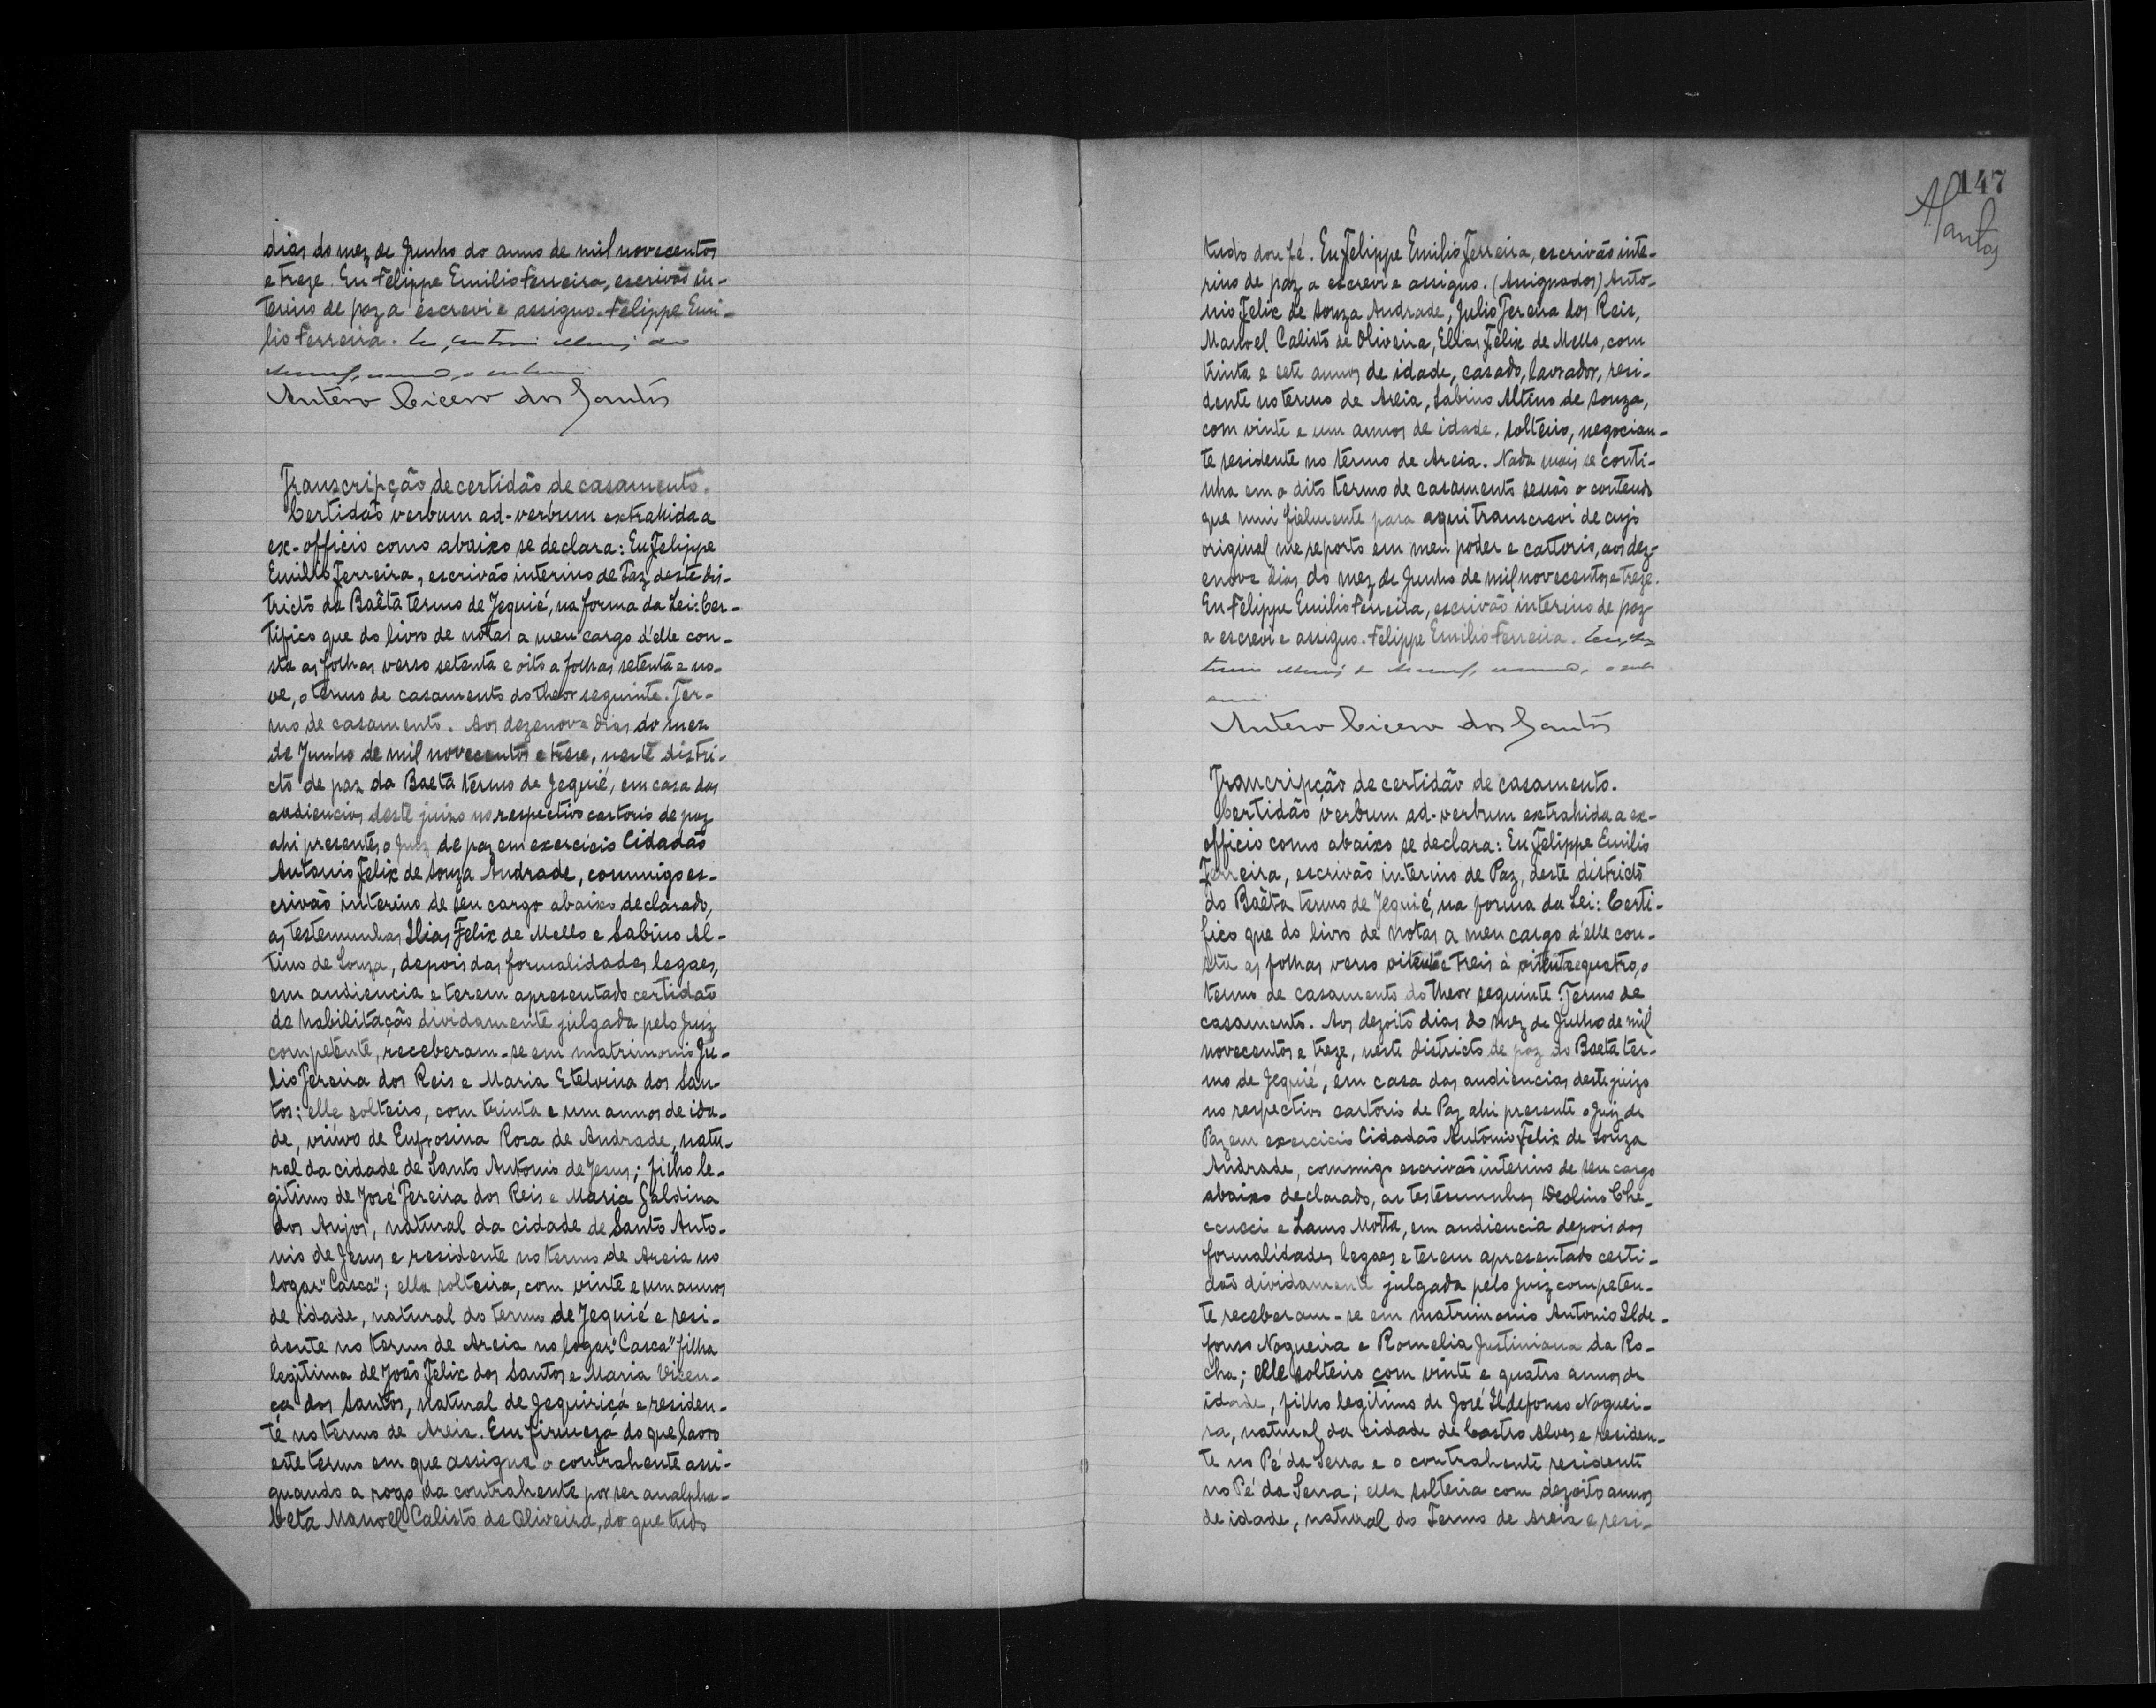 dias do mez de Junho do anno de mil novecentos
e treze. Eu Felippe Emilio Ferreira, escrivão in-
terino de paz a escrevi e assigno. Felippe Emi-
lio Ferreira.
Antero Cicero dos Santos
Transcripção de certidão de casamento.
Certidão verbum ad-verbum extrahida a
ex-officio como abaixo se declara: Eu Felippe
Emilio Ferreira, escrivão interino de Paz deste dis-
tricto da Baêta termo de Jequié, na forma da Lei: Cer-
tifico que do livro de notas a meu cargo d'elle con-
sta as folhas verso setenta e oito a folhas setenta e no-
ve, o termo de casamento do theor seguinte. Ter-
mo de casamento. Aos dezenove dias do mez
de Junho de mil novecentos e treze, neste distri-
cto de paz da Baeta termo de Jequié, em casa das
audiencias deste juizo no respectivo cartorio de paz
ahi presentes o Juiz de paz em exercicio Cidadão
Antonio Felix de Souza Andrade, commigo es-
crivão interino de seu cargo abaixo declarado,
as testemunhas Ilias Felix de Mello e Sabino Al-
tino de Souza, depois das formalidades legaes,
em audiencia e terem apresentado certidão
de habilitação dividamente julgada pelo Juiz
competente, receberam-se em matrimonio Ju-
lio Pereira dos Reis e Maria Etelvina dos San-
tos; elle solteiro, com trinta e um annos de ida-
de, viúvo de Eufrosina Rosa de Andrade, natu-
ral da cidade de Santo Antonio de Jesus; filho le-
gitimo de José Pereira dos Reis e Maria Galdina
dos Anjos, natural da cidade de Santo Anto-
nio de Jesus e residente no termo de Areia no
logar "Casca"; ella solteira, com vinte e um annos
de idade, natural do termo de Jequié e resi-
dente no termo de Areia no logar "Casca" filha
legitima de João Felix dos Santos e Maria Vicen-
ça dos Santos, natural de Jequiriçá e residen-
te no termo de Areia. Em firmeza do que lavro
este termo em que assigna o contrahente assi-
gnando a rogo da contrahente por ser analpha-
beta Manoel Calisto de Oliveira, do que tudo
147
tudo dou fé. Eu Felippe Emilio Ferreira, escrivão inte-
rino de paz a escrevi e assigno. (Assignados) Anto-
nio Felix de Souza Andrade, Julio Pereira dos Reis,
Manoel Calisto de Oliveira, Elias Felix de Mello, com
trinta e sete annos de idade, casado, lavrador, resi-
dente no termo de Areia, Sabino Altino de Souza,
com vinte e um annos de idade, solteiro, negocian-
te residente no termo de Areia. Nada mais se conti-
nha em o dito termo de casamento senão o contendo
que mui fielmente para aqui transcrevi de cujo
original me reporto em meu poder e cartorio, aos dez-
enove dias do mez de Junho de mil novecentos e treze.
Eu Felippe Emilio Ferreira, escrivão interino de paz
a escrevi e assigno. Felippe Emilio Ferreira.
Antero Cicero dos Santos
Trancripção de certidão de casamento.
Certidão verbum ad-verbum extrahida a ex-
officio como abaixo se declara: Eu Felippe Emilio
Ferreira, escrivão interino de Paz, deste districto
do Baêta termo de Jequié, na forma da Lei: Certi-
fico que do livro de notas a meu cargo d'elle con-
sta as folhas verso oitenta e treis á oitenta e quatro, o
termo de casamento do theor seguinte: Termo de
casamento. Aos dezoito dias do mez de Julho de mil
novecentos e treze, neste districto de paz do Baeta ter-
mo de Jequié, em casa das audiencias deste juizo
no respectivo cartorio de Paz ahi presente o Juiz de
Paz em exercicio Cidadão Antonio Felix de Souza
Andrade, commigo escrivão interino de seu cargo
abaixo declarado, as testemunhas Deolino Che-
ccucci e Lauro Motta, em audiencia depois das
formalidades legaes e terem apresentado certi-
dão dividamente julgada pelo Juiz competen-
te receberam-se em matrimonio Antonio Ilde-
fonso Nogueira e Romelia Justiniana da Ro-
cha; elle solteiro com vinte e quatro annos de
idade, filho legitimo de José Ildefonso Noguei-
ra, natural da cidade de Castro Alves e residen-
te no Pé da Serra e o contrahente residente
no Pé da Serra; ella solteira com dezoito annos
de idade, natural do Termo de Areia e resi-